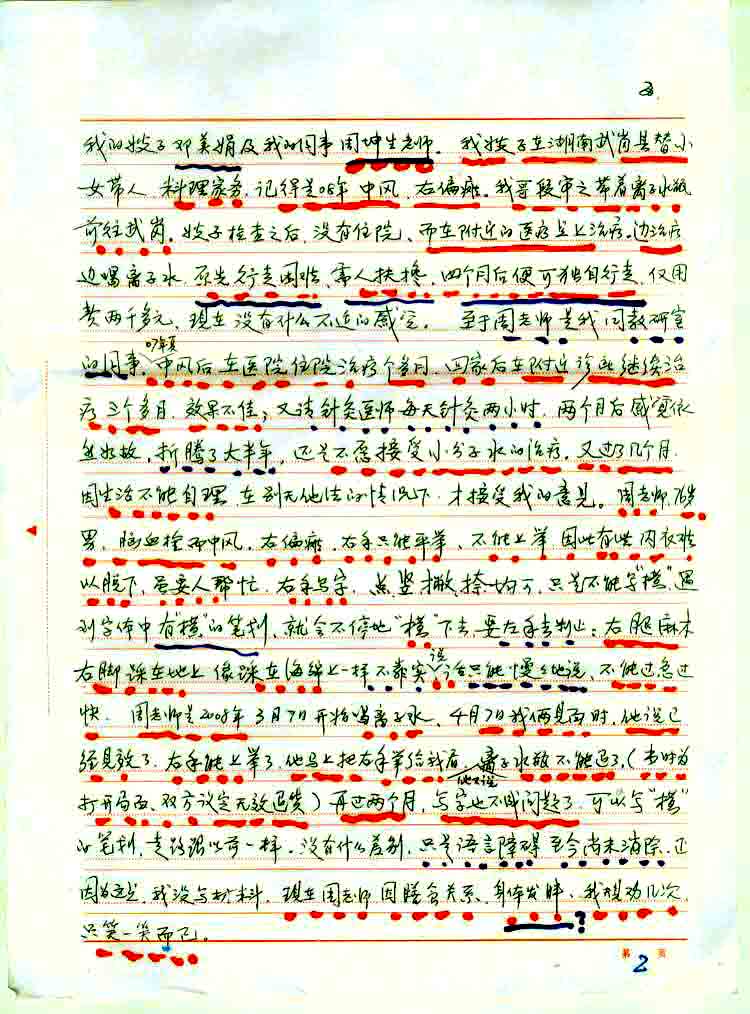 我的嫂子邓美娟及我的同事周坤生老师。我嫂子在湖南武岗县替小
女带人、料理家务，记得是08年中风、右偏瘫。我哥段审之带着离子水瓶
前往武岗。嫂子检查之后，没有住院、而在附近的医疗点上治疗。边治疗
边喝离子水，原先行走困难、需人扶搀，四个月后便可独自行走，仅用
费两千多元，现在没有什么不适的感觉。 至于周老师是我同教研室
的同事，07年夏中风后在医院住院治疗个多月，回家后在附近诊所继续治
疗三个多月，效果不佳；又请针灸医师每天针灸两小时，两个月后感觉依
然如故，折腾了大半年，还是不愿接受小分子水的治疗，又过了几个月，
因生活不能自理，在别无他法的情况下，才接受我的意见。周老师，76岁，
男，脑血栓而中风，右偏瘫，右手只能平举、不能上举，因此有些内衣难
以脱下，要人帮忙，右手写字，点竖撇捺均可，只是不能写“横”遇
到字体中有“横”的笔划，就会不停地“横”下去，要左手去制止；右腿麻木
右脚踩在地上像踩在海绵上一样不踏实，说话只能慢慢地说，不能过急过
快。周老师是2008年3月7日开始喝离子水，4月7日我俩见面时，他说已
经见效了，右手能上举了，他马上把右手举给我看，他又说离子水瓶不能退了，（当时为
打开局面，双方议定无效退货）再过两个月，写字也不成问题了，可以写“横”
的笔划，走路跟以前一样，没有什么差别，只是语言障碍至今尚未消除，正
因为这点，我没写材料，现在周老师因膳食关系，身体发胖，我规劝几次，
只笑一笑而已。
?
第 2 页